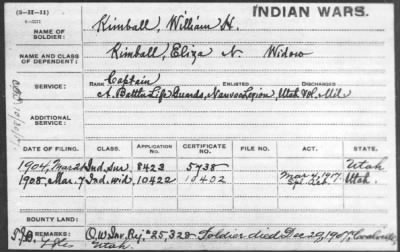 (3-II-11)
6-4221
INDIAN WARS.
NAME OF SOLDIER: Kimball, William H.
NAME AND CLASS OF DEPENDENT: Kimball, Eliza N. Widow
SERVICE: RANK Captain ENLISTED DISCHARGED
A. Battn Life Guards, Nauvoo Legion, Utah Vol. Mil.
ADDITIONAL SERVICE:
DATE OF FILING. CLASS. APPLICATION NO. CERTIFICATE NO. FILE NO. ACT. STATE.
1904, Mar. 26 Ind. Sur. 8423 5738 Utah
1908, Mar. 7 Ind. wid. 10422 10402 Mar 4, '17 Spl. Act. Utah.
BOUNTY LAND:
REMARKS: O.W. Inv. Rej. #25,328 Soldier died Dec 29, 1907,
Utah.